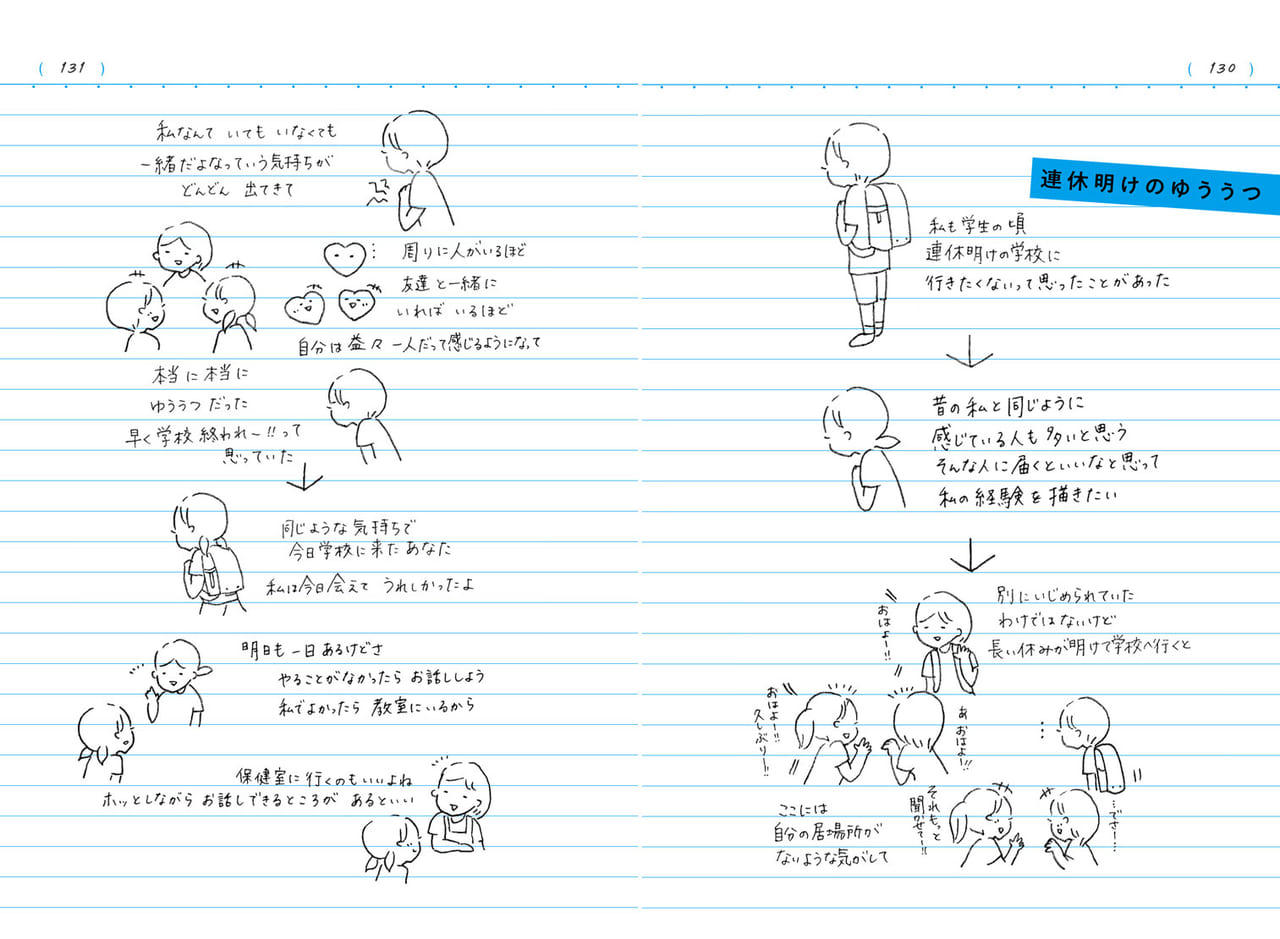 ( 130 )
連休明けのゆううつ
私も学生の頃
連休明けの学校に
行きたくないって思ったことがあった
昔の私と同じように
感じている人も多いと思う
そんな人に届くといいなと思って
私の経験を描きたい
別にいじめられていた
わけではないけど
長い休みが明けて学校へ行くと
おはよー!!
あ おはよー!!
おはよー!!
久しぶりー!!
…でさー…
それもっと
聞かせてー!!
ここには
自分の居場所が
ないような気がして
( 131 )
私なんて いても いなくても
一緒だよなっていう気持ちが
どんどん 出てきて
周りに人がいるほど
友達と一緒に
いれば いるほど
自分は益々 一人だって感じるようになって
本当に本当に
ゆううつ だった
早く学校 終われー!!って
思っていた
同じような気持ちで
今日学校に来た あなた
私は今日会えて うれしかったよ
明日も一日あるけどさ
やることがなかったら お話ししよう
私でよかったら 教室にいるから
保健室に行くのもいいよね
ホッとしながら お話しできるところが あるといい